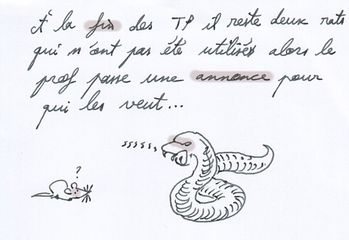 À la fin des TP il reste deux rats
qui n'ont pas été utilisés alors le
prof passe une annonce pour
qui les veut...
sssssss
?